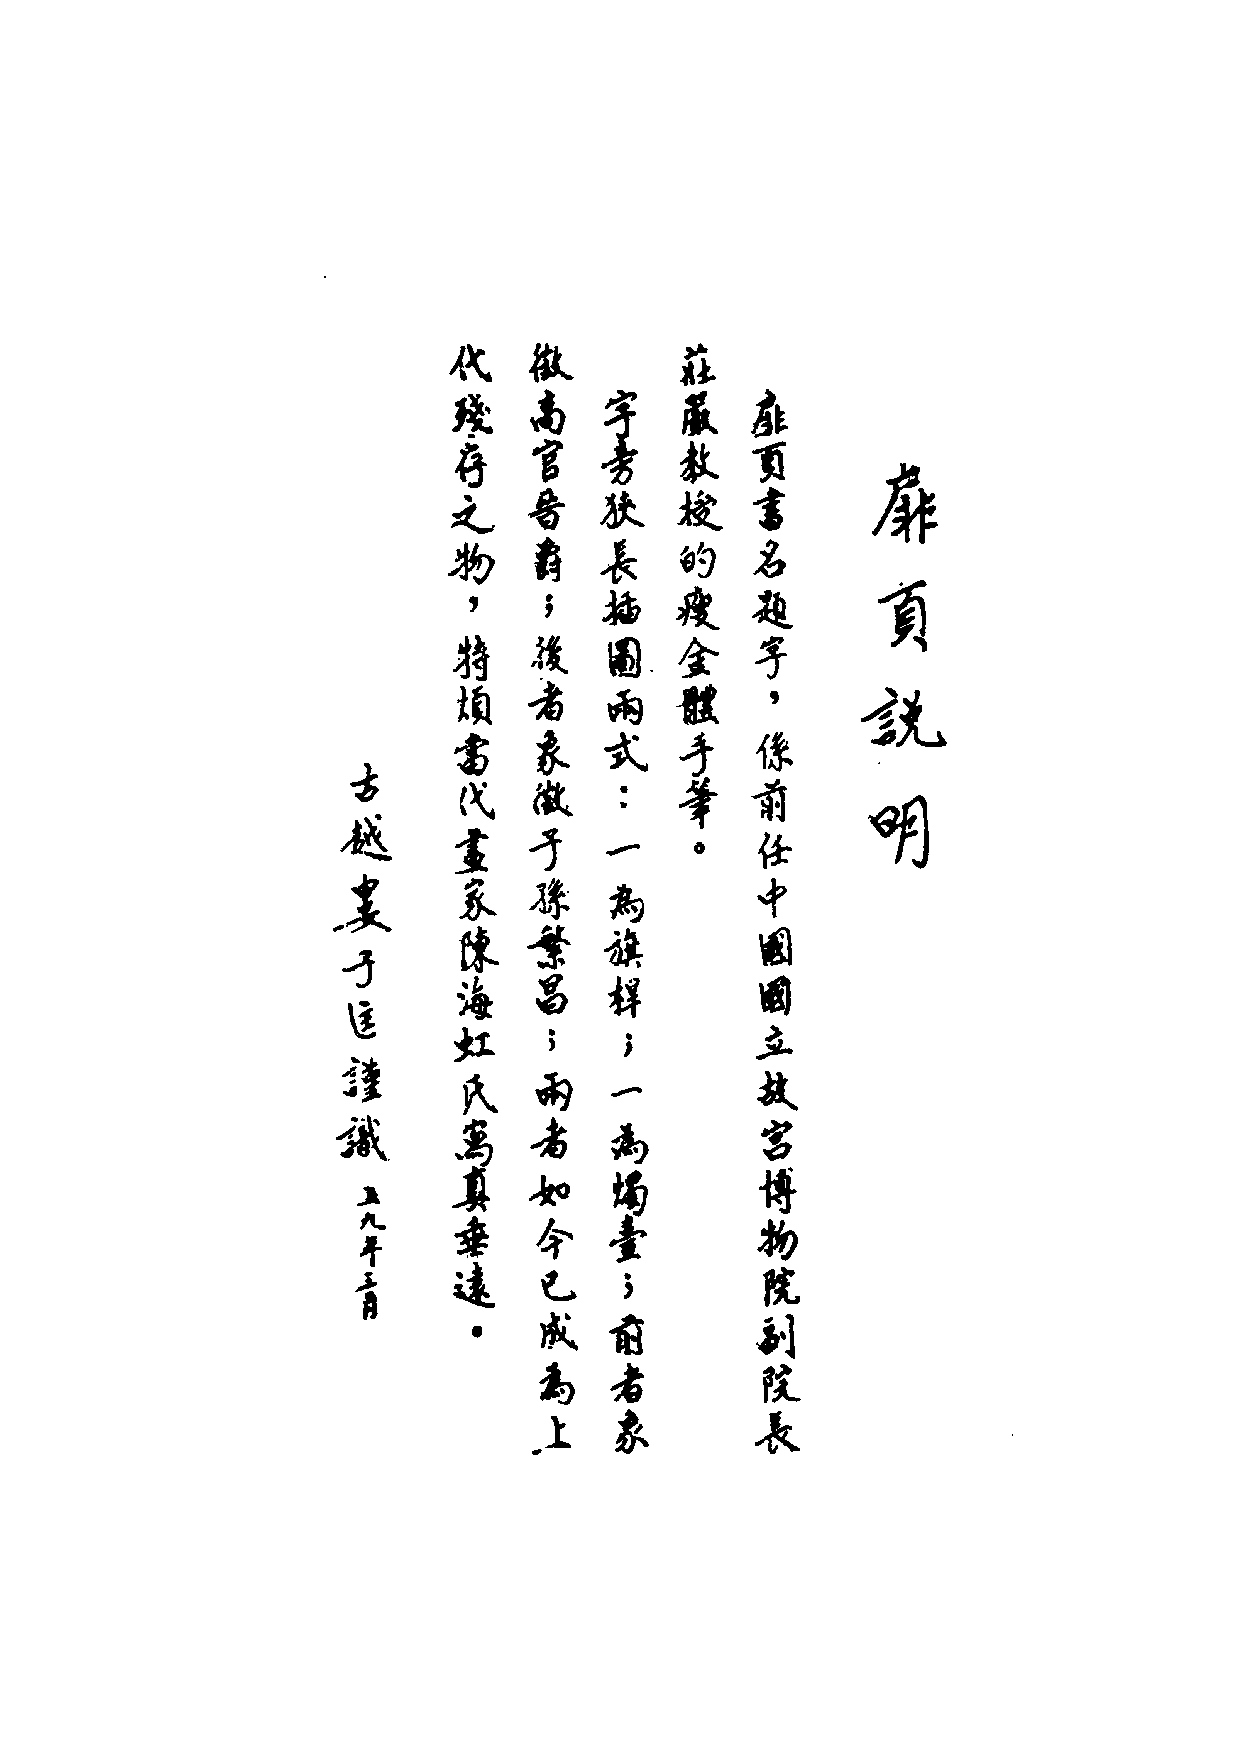 扉頁説明
扉頁書名題字，係前任中國國立故宮博物院副院長
莊嚴教授的瘦金體手筆。
字旁狹長插圖兩式：一為旗桿；一為燭臺；前者象
徵高官晉爵；後者象徵子孫繁昌；兩者如今已成為上
代殘存之物，特煩當代畫家陳海虹氏寫真垂遠。
古越婁子匡謹識 五九年三月